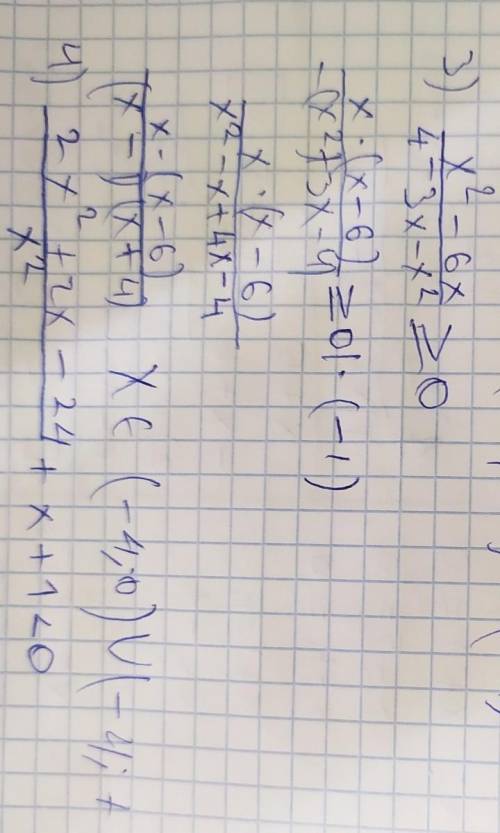 3) x² - 6x / 4 - 3x - x² ≥ 0
x · (x - 6) / -(x² + 3x - 4) ≥ 0 | · (-1)
x · (x - 6) / x² - x + 4x - 4
x · (x - 6) / (x - 1)(x + 4) x ∈ (-4; 0) ∪ (-4; +
4) 2x² + 2x - 24 / x² + x + 1 < 0